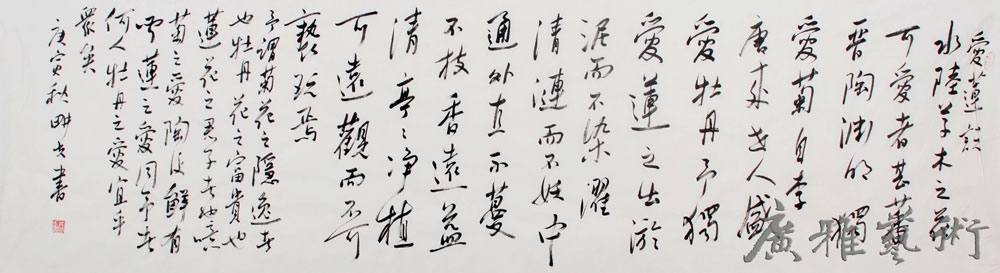 愛蓮說
水陸草木之花
可愛者甚蕃
晉陶淵明獨
愛菊自李
唐來世人盛
愛牡丹予獨
愛蓮之出淤
泥而不染濯
清漣而不妖中
通外直不蔓
不枝香遠益
清亭〻淨植
可遠觀而不可
褻玩焉
予謂菊花之隱逸者
也牡丹花之富貴也
蓮花之君子者也噫
菊之愛陶後鮮有
聞蓮之愛同予者
何人牡丹之愛宜乎
眾矣
庚寅秋畊夫書
廣雅藝術